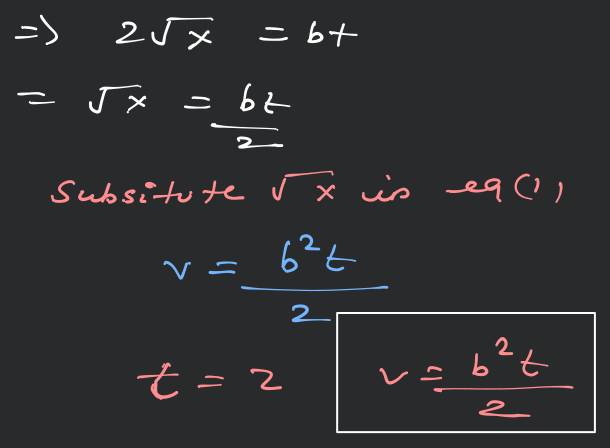 => 2√x = bt
= √x = bt/2
Subsitute √x in eq(1)
v = b²t/2
t = 2
v = b²t/2